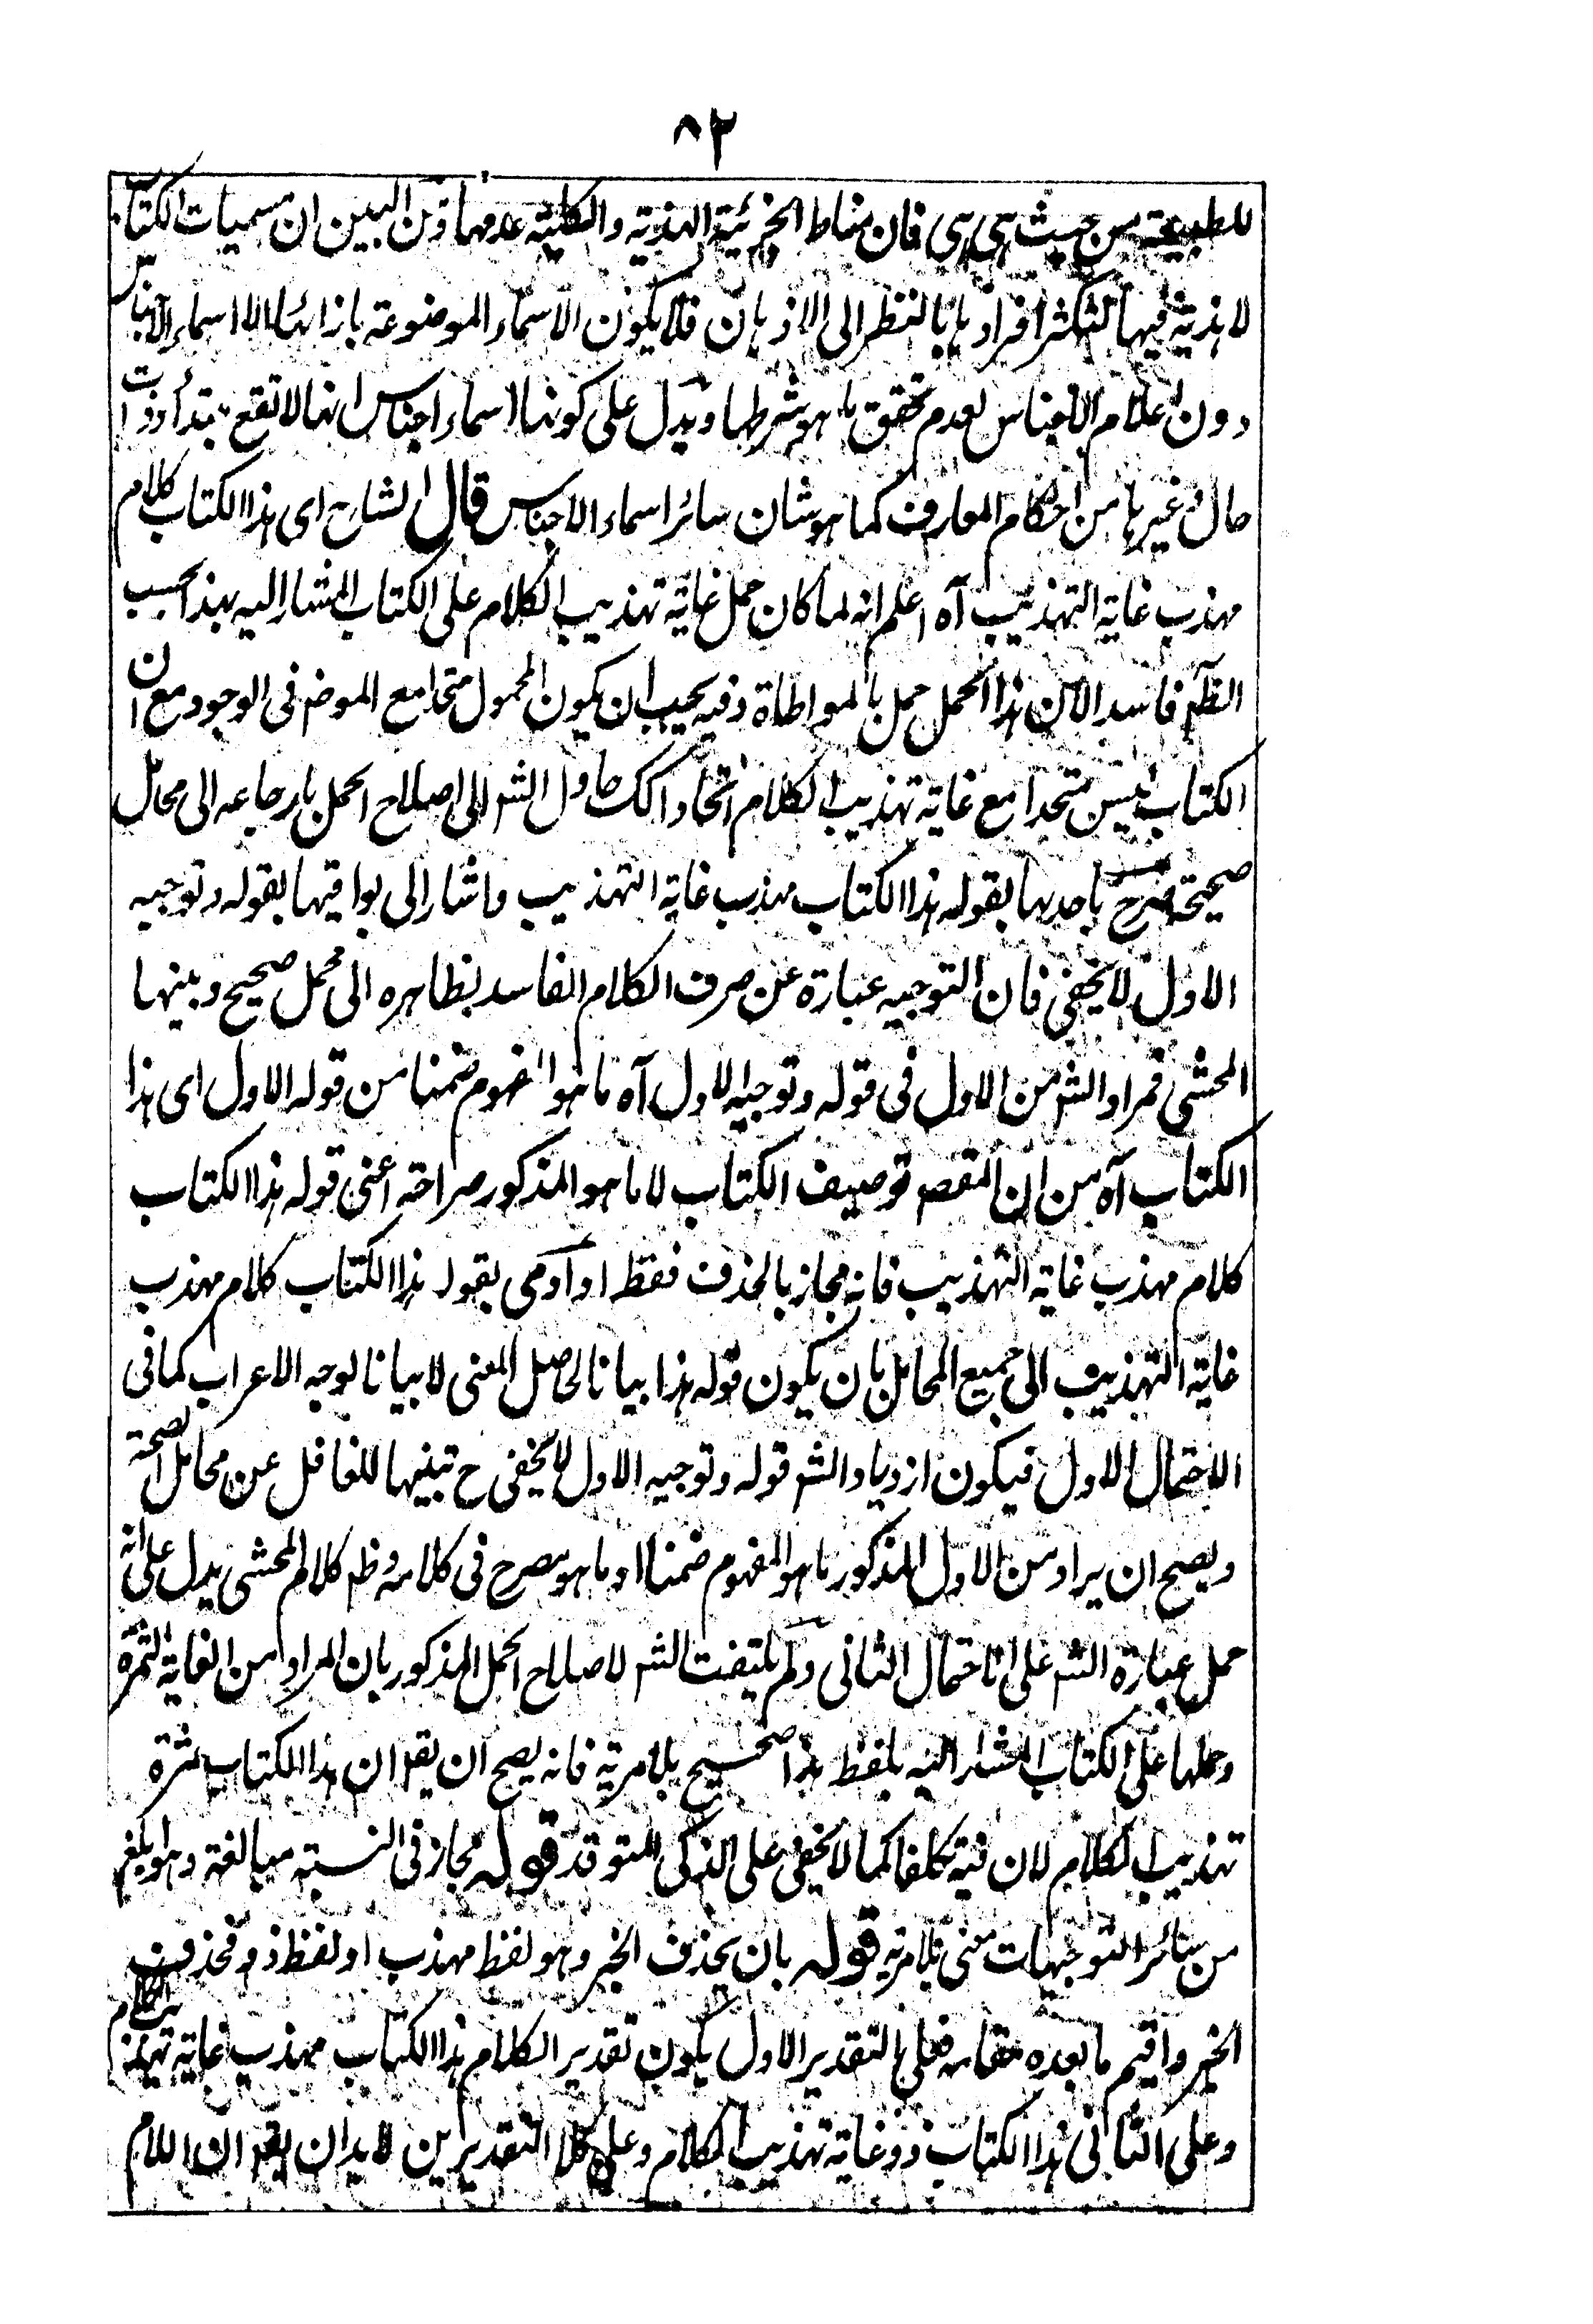 ٨٢
للطبيعة من حيث هى هى فان مناط الجزئية الهذية والكلية عدمها ومن البين ان مسميات الكتاب
لا هذية فيها لتكثر افرادها بالنظر الى الاذهان فلا يكون الاسماء الموضوعة بازائها الا اسماء الاجناس
دون اعلام الاجناس لعدم تحقق ما هو شرطها ويدل على كونها اسماء اجناس انها لا تقع مبتدأ وذات
حال وغيرها من احكام المعارف كما هو شان سائر اسماء الاجناس قال الشارح اى هذا الكتاب كلام
مهذب غاية التهذيب آه اعلم انه لما كان حمل غاية تهذيب الكلام على الكتاب المشار اليه بهذا بحسب
الظم فاسدا لان هذا الحمل حمل بالمواطاة وفيه يجب ان يكون المحمول متحدا مع الموضوع فى الوجود مع ان
الكتاب ليس متحدا مع غاية تهذيب الكلام اتحادا كك حاول الشر الى اصلاح الحمل بارجاعه الى محامل
صحيحة صرح باحدها بقوله هذا الكتاب مهذب غاية التهذيب واشار الى بواقيها بقوله وتوجيه
الاول لا يخفى فان التوجيه عبارة عن صرف الكلام الفاسد بظاهره الى محمل صحيح وبينها
المحشى فمراد الشر من الاول فى قوله وتوجيه الاول آه ما هو المفهوم ضمنا من قوله الاول اى هذا
الكتاب آه من ان المقصم توصيف الكتاب لا ما هو المذكور صراحة اعنى قوله هذا الكتاب
كلام مهذب غاية التهذيب فانه مجاز بالحذف فقط او آومى بقوله هذا الكتاب كلام مهذب
غاية التهذيب الى جميع المحامل بان يكون قوله هذا بيانا لحاصل المعنى لا بيانا لوجه الاعراب كما فى
الاحتمال الاول فيكون ازدياد الشر قوله وتوجيه الاول لا يخفى ح تنبيها للغافل عن محامل الصحة
ويصح ان يراد من الاول المذكور ما هو المفهوم ضمنا او ما هو مصرح فى كلامه وظم كلام المحشى يدل على انه
حمل عبارة الشر على الاحتمال الثانى ولم يلتفت الشر لاصلاح الحمل المذكور بان المراد من الغاية الثمرة
وحملها على الكتاب المشار اليه بلفظ هذا صحيح بلا مرية فانه يصح ان يقم ان هذا الكتاب ثمرة
تهذيب الكلام لان فيه تكلفا كما لا يخفى على الذكى المتوقد قوله مجاز فى النسبة مبالغة وهو ابلغ
من سائر التوجيهات معنى بلا مرية قوله بان يحذف الخبر وهو لفظ مهذب او لفظ ذو فحذف
الخبر واقيم ما بعده مقامه فعلى التقدير الاول يكون تقدير الكلام هذا الكتاب مهذب غاية تهذيب الكلام
وعلى الثانى هذا الكتاب ذو غاية تهذيب الكلام وعلى كلا التقديرين لا بد ان يقم ان اللام